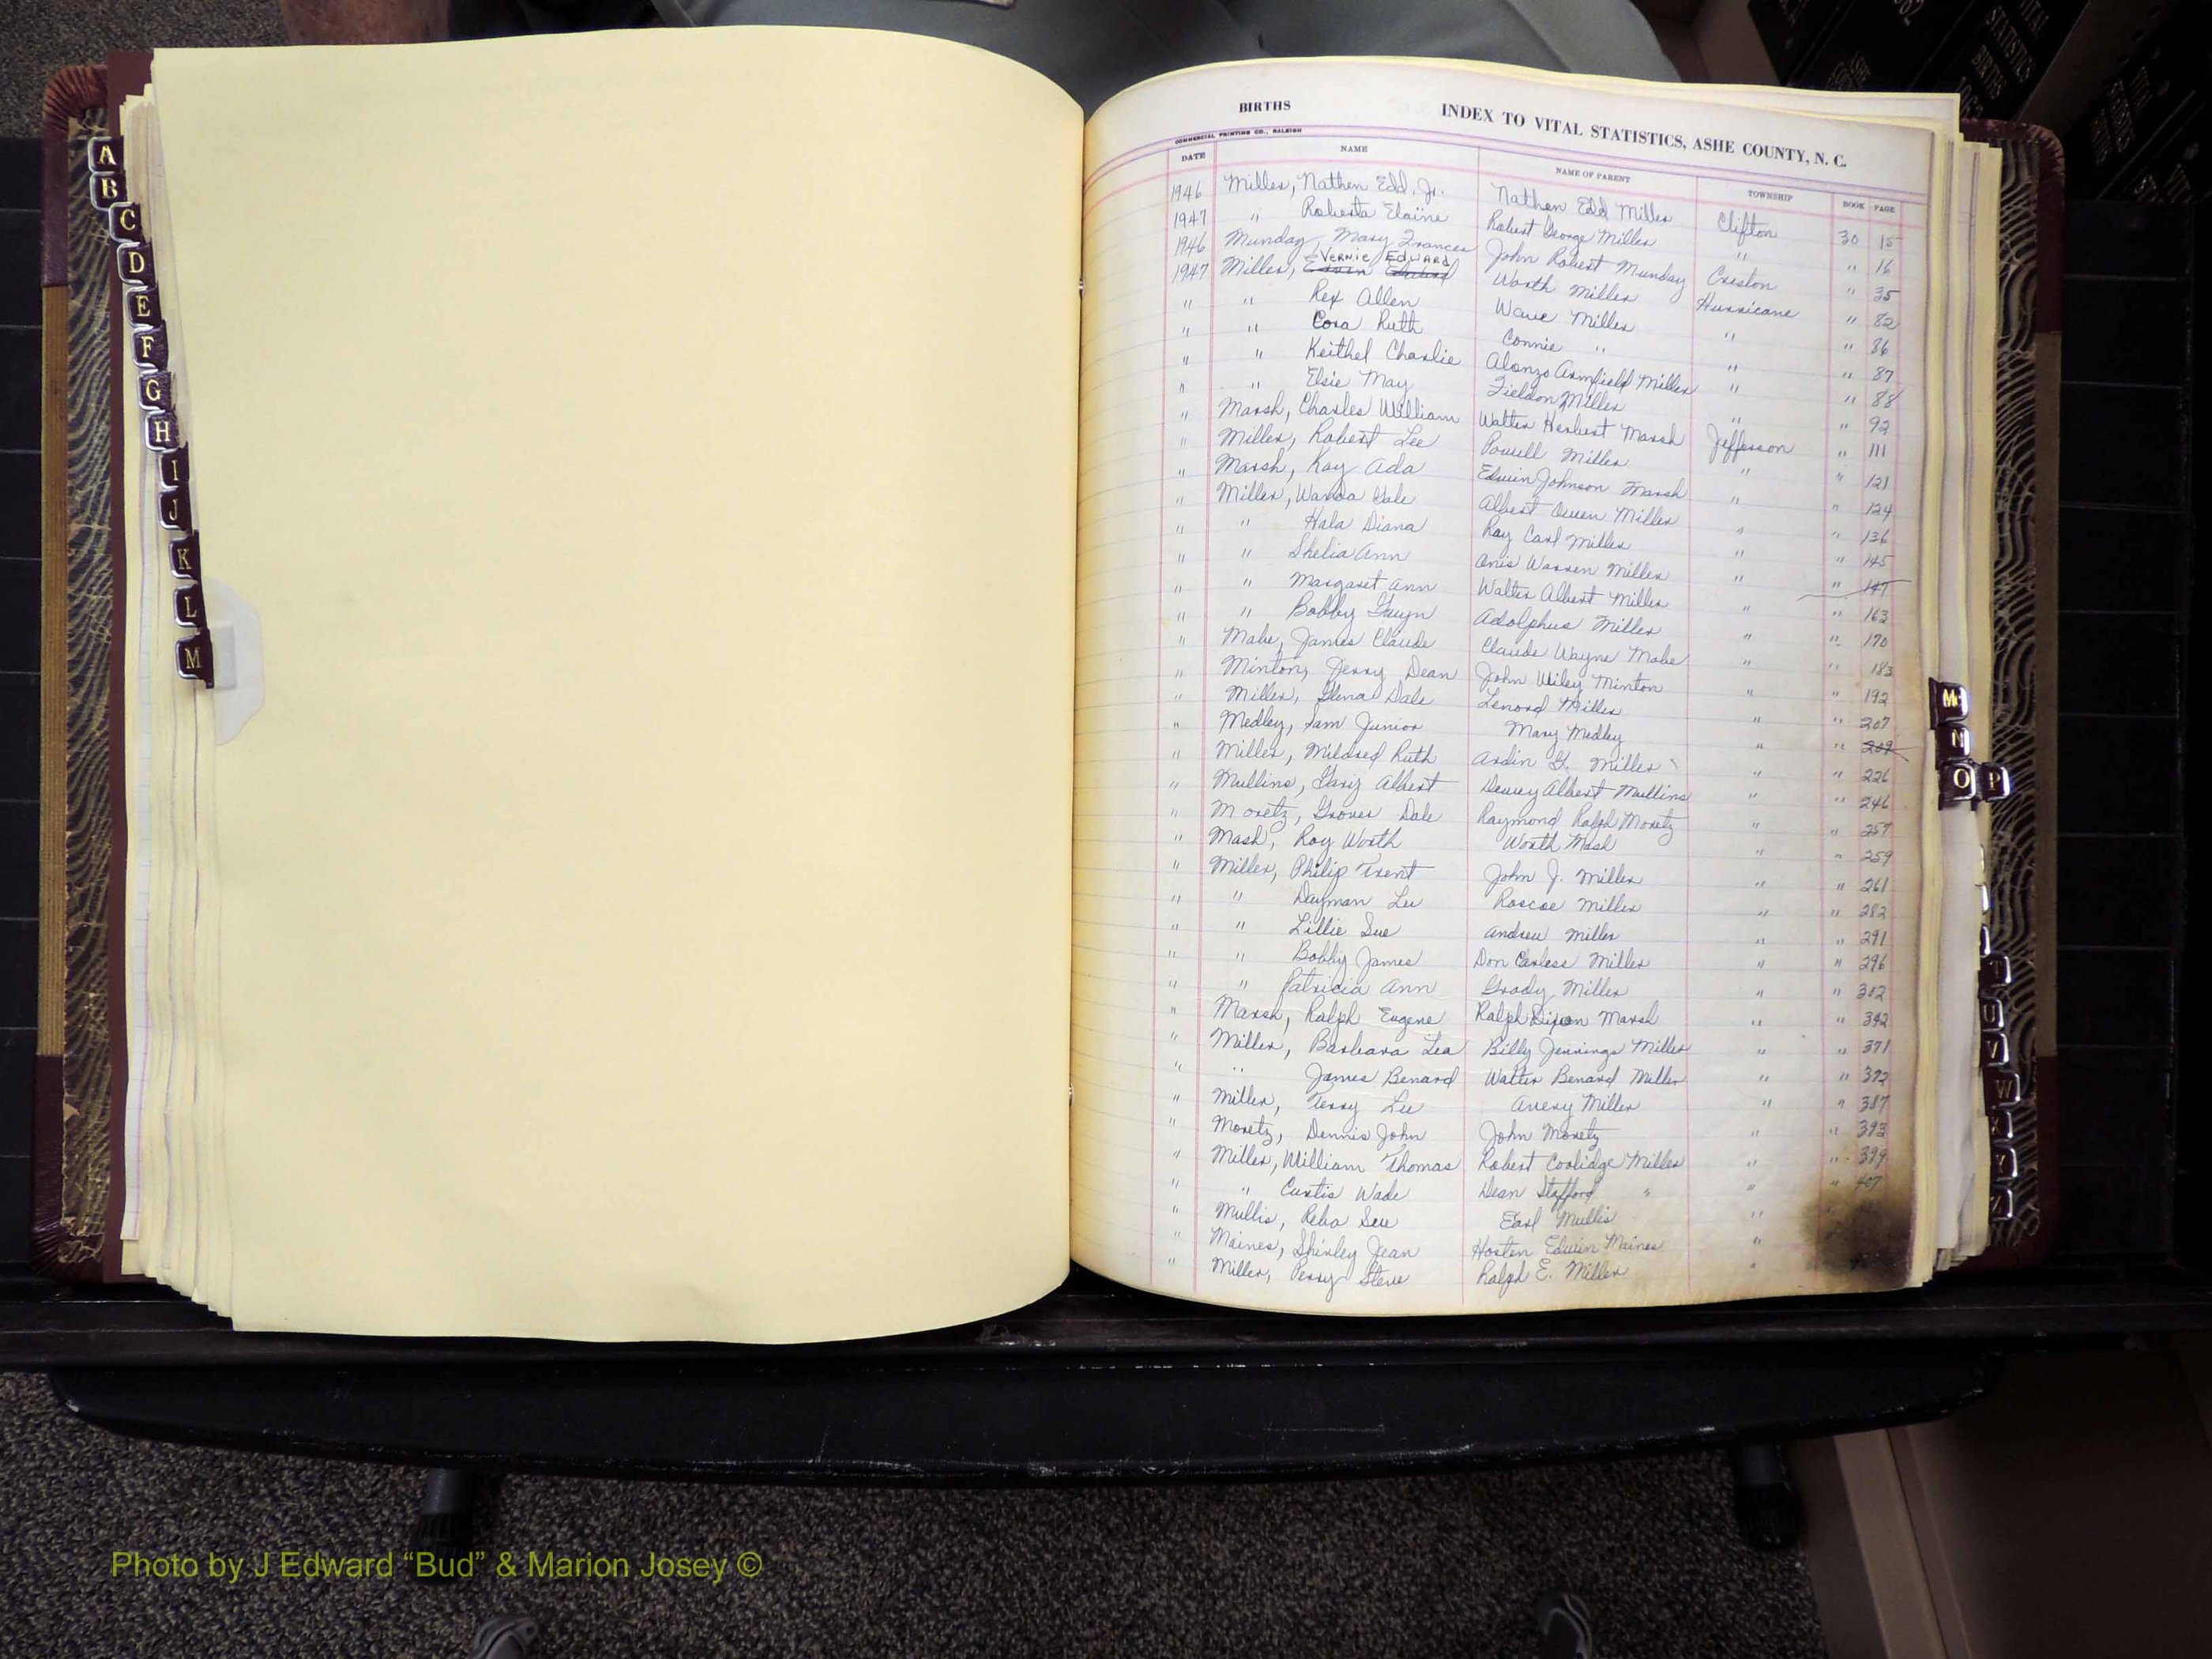 BIRTHS INDEX TO VITAL STATISTICS, ASHE COUNTY, N. C.
COMMERCIAL PRINTING CO., RALEIGH
DATE NAME NAME OF PARENT TOWNSHIP BOOK PAGE
1946 Miller, Nathen Edd. Jr. Nathen Edd Miller Clifton 30 15
1947 " Roberta Elaine Robert George Miller " " 16
1946 Munday, Mary Frances John Robert Munday Creston " 35
1947 Miller, VERNIE EDWARD Worth Miller Hurricane " 82
" " Rex Allen Wave Miller " " 86
" " Cora Ruth Connie " " " 87
" " Keithel Charlie Alonzo Armfield Miller " " 88
" " Elsie May Fieldon Miller " " 92
" Marsh, Charles William Walter Herbert Marsh Jefferson " 111
" Miller, Robert Lee Powell Miller " " 121
" Marsh, Kay Ada Edwin Johnson Marsh " " 124
" Miller, Wanda Gale Albert Owen Miller " " 136
" " Hala Diana Ray Carl Miller " " 145
" " Shelia Ann Warren Miller " " 147
" " Margaret Ann Walter Albert Miller " " 163
" " Bobby Gwyn Adolphus Miller " " 170
" Mabe, James Claude Claude Wayne Mabe " " 183
" Minton, Jerry Dean John Wiley Minton " " 192
" Miller, Glena Dale Lenord Miller " " 207
" Medley, Sam Junior Mary Medley " " 209
" Miller, Mildred Ruth Ardin G. Miller " " 226
" Mullins, Gary Albert Dewey Albert Mullins " " 246
" Moretz, Grover Dale Raymond Ralph Moretz " " 257
" Mash, Roy Worth Worth Mash " " 259
" Miller, Philip Trent John J. Miller " " 261
" " Dayman Lee Roscoe Miller " " 282
" " Lillie Sue Andrew Miller " " 291
" " Bobby James Don Carless Miller " " 296
" " Patricia Ann Grady Miller " " 302
" Marsh, Ralph Eugene Ralph Dixon Marsh " " 342
" Miller, Barbara Lea Billy Jennings Miller " " 371
" " James Benard Walter Benard Miller " " 372
" Miller, Terry Lee Avery Miller " " 387
" Moretz, Dennis John John Moretz " " 393
" Miller, William Thomas Robert Coolidge Miller " " 399
" " Curtis Wade Dean Stafford " " " 407
" Mullis, Reba Sue Earl Mullis "
" Maines, Shirley Jean Hosten Edwin Maines "
" Miller, Perry Steve Ralph E. Miller "
A
B
C
D
E
F
G
H
I
J
K
L
M
Mc
N
O P
T
U
V
W
X
Y
Z
Photo by J Edward “Bud” & Marion Josey ©